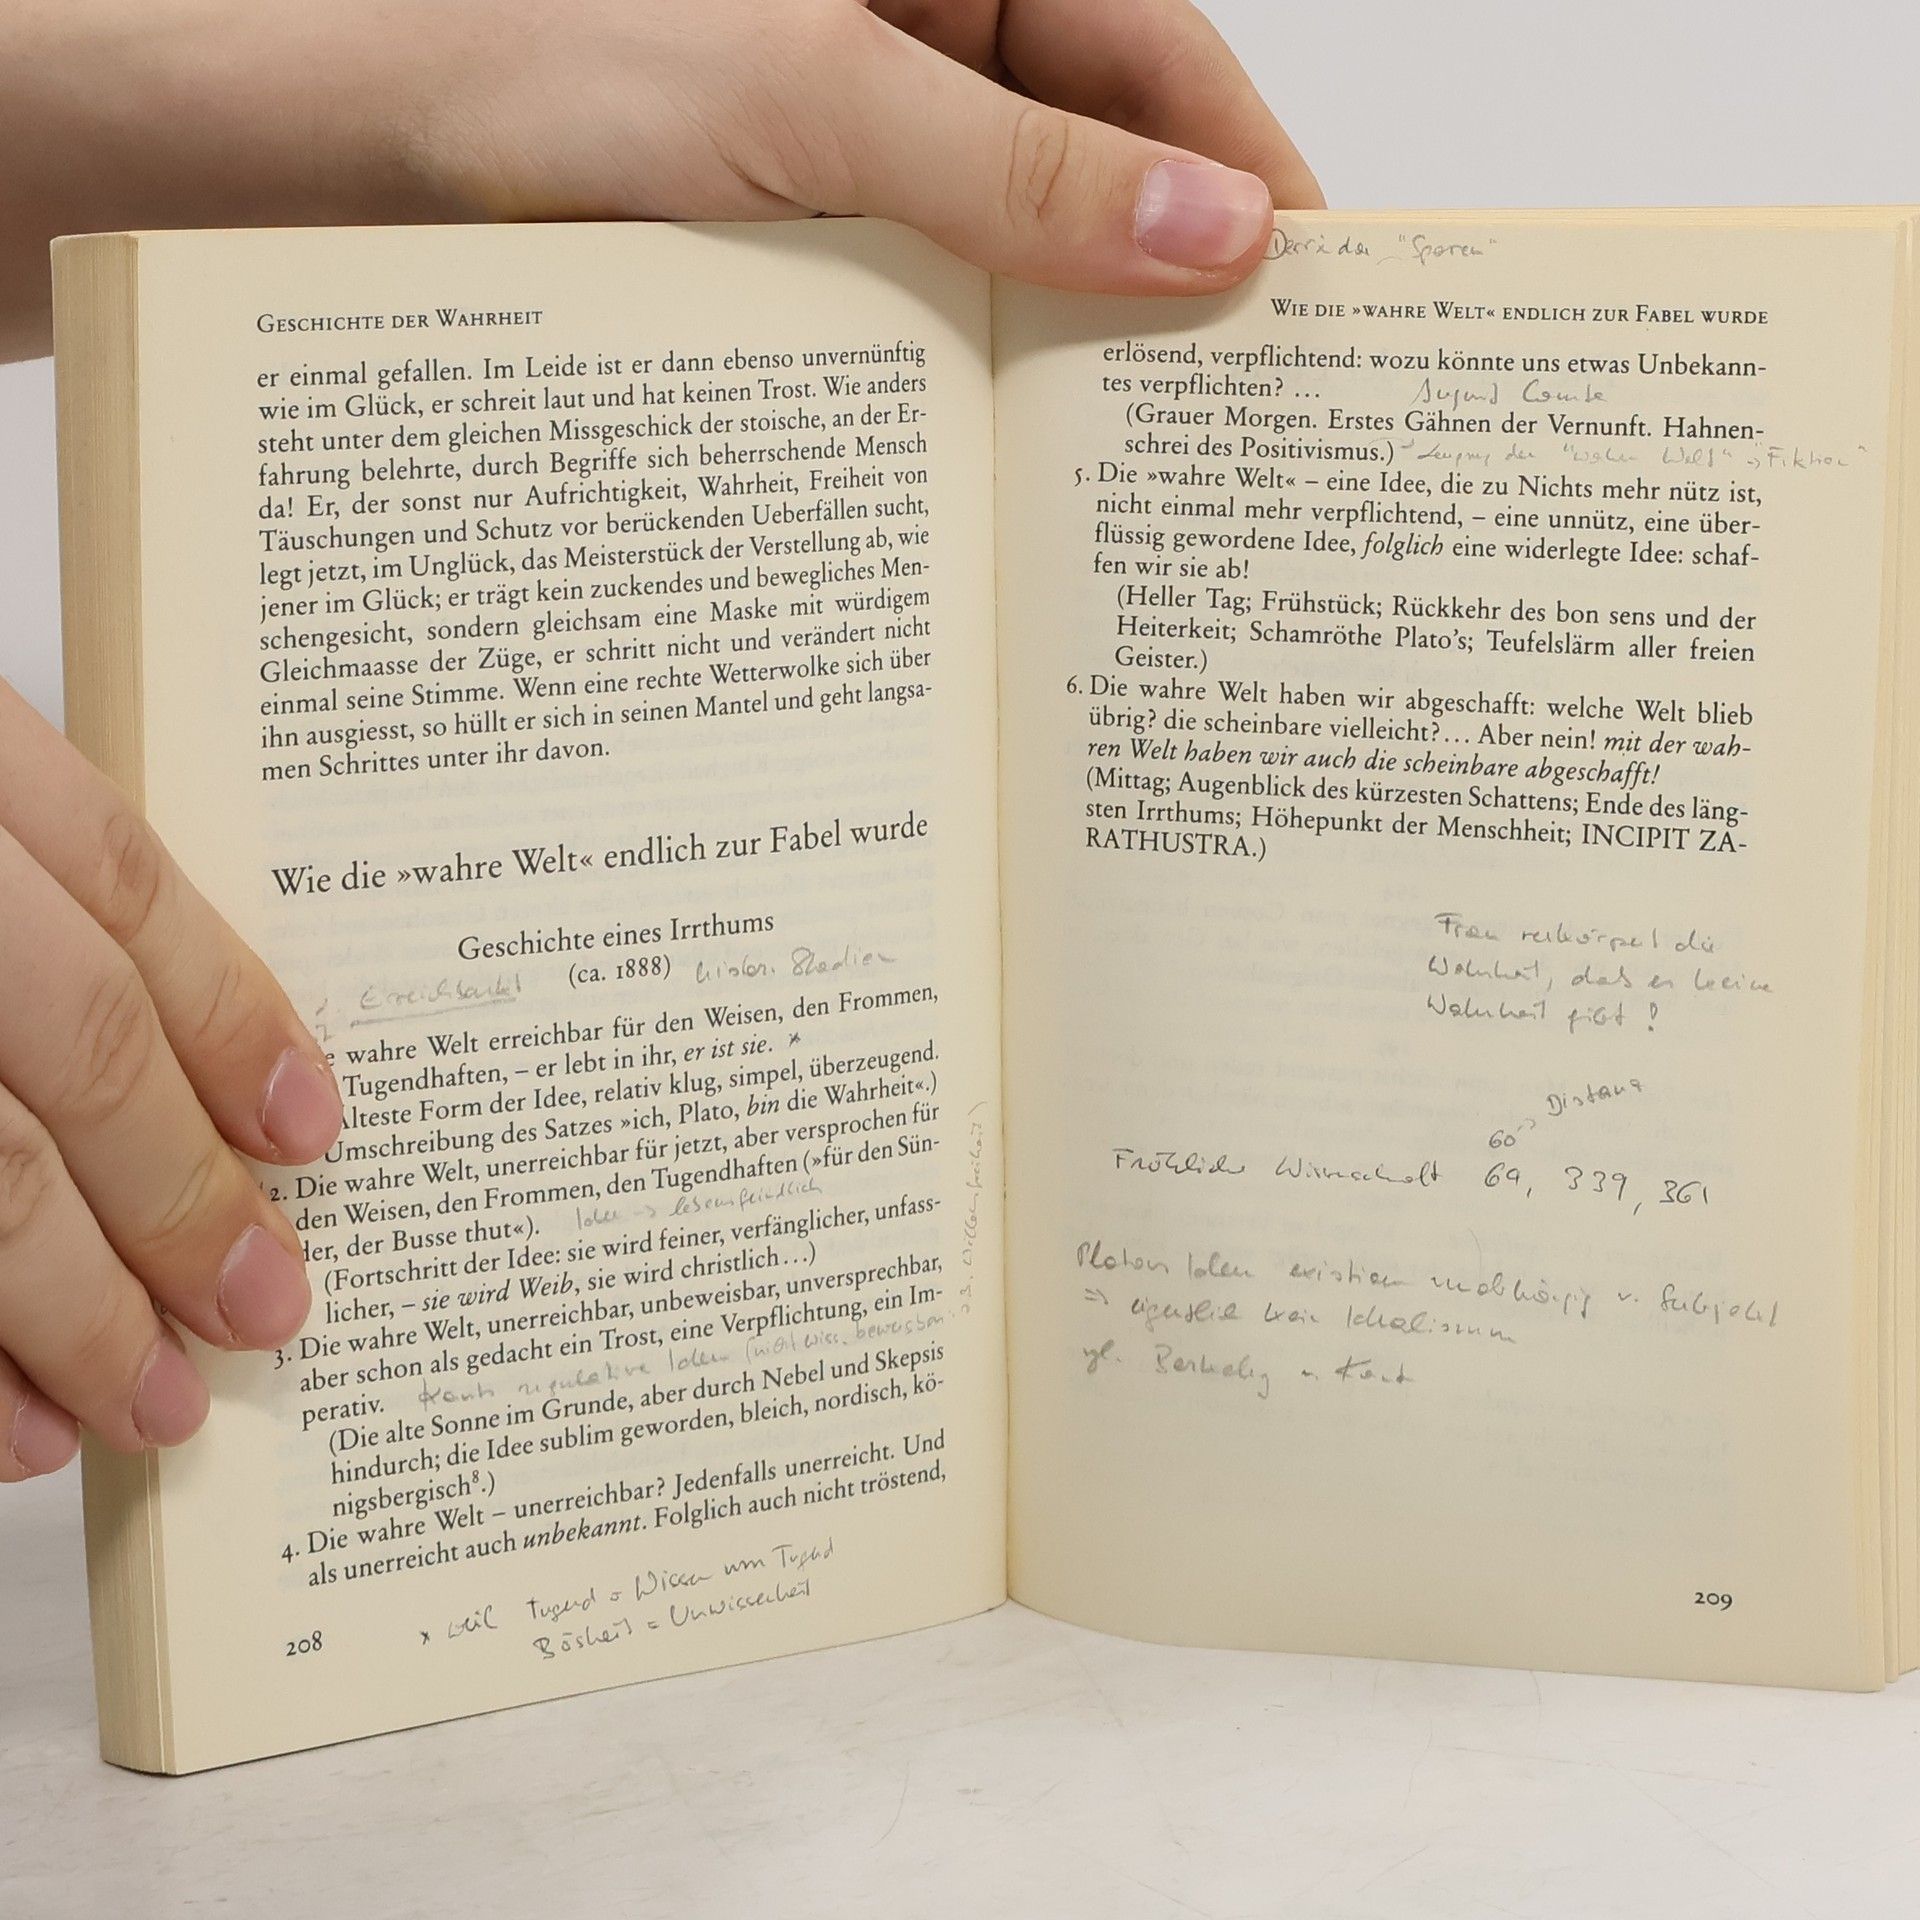 GESCHICHTE DER WAHRHEIT
er einmal gefallen. Im Leide ist er dann ebenso unvernünftig
wie im Glück, er schreit laut und hat keinen Trost. Wie anders
steht unter dem gleichen Missgeschick der stoische, an der Er-
fahrung belehrte, durch Begriffe sich beherrschende Mensch
da! Er, der sonst nur Aufrichtigkeit, Wahrheit, Freiheit von
Täuschungen und Schutz vor berückenden Ueberfällen sucht,
legt jetzt, im Unglück, das Meisterstück der Verstellung ab, wie
jener im Glück; er trägt kein zuckendes und bewegliches Men-
schengesicht, sondern gleichsam eine Maske mit würdigem
Gleichmaasse der Züge, er schritt nicht und verändert nicht
einmal seine Stimme. Wenn eine rechte Wetterwolke sich über
ihn ausgiesst, so hüllt er sich in seinen Mantel und geht langsa-
men Schrittes unter ihr davon.
Wie die »wahre Welt« endlich zur Fabel wurde
Geschichte eines Irrthums
(ca. 1888) histor. Stadien
Erreichbarkeit
e wahre Welt erreichbar für den Weisen, den Frommen,
Tugendhaften, – er lebt in ihr, er ist sie. *
Älteste Form der Idee, relativ klug, simpel, überzeugend.
Umschreibung des Satzes »ich, Plato, bin die Wahrheit«.)
2. Die wahre Welt, unerreichbar für jetzt, aber versprochen für
den Weisen, den Frommen, den Tugendhaften (»für den Sün-
der, der Busse thut«). Idee → lebensfeindlich
(Fortschritt der Idee: sie wird feiner, verfänglicher, unfass-
licher, – sie wird Weib, sie wird christlich…)
3. Die wahre Welt, unerreichbar, unbeweisbar, unversprechbar,
aber schon als gedacht ein Trost, eine Verpflichtung, ein Im-
perativ. Kants regulative Ideen (nicht wiss. beweisbar
z.B. Willensfreiheit)
(Die alte Sonne im Grunde, aber durch Nebel und Skepsis
hindurch; die Idee sublim geworden, bleich, nordisch, kö-
nigsbergisch⁸.)
4. Die wahre Welt – unerreichbar? Jedenfalls unerreicht. Und
als unerreicht auch unbekannt. Folglich auch nicht tröstend,
* weil Tugend = Wissen um Tugend
Bösheit = Unwissenheit
208
Derrida "Sporen"
WIE DIE »WAHRE WELT« ENDLICH ZUR FABEL WURDE
erlösend, verpflichtend: wozu könnte uns etwas Unbekann-
tes verpflichten? … August Comte
(Grauer Morgen. Erstes Gähnen der Vernunft. Hahnen-
schrei des Positivismus.) → Leugnung der "wahren Welt" → "Fiktion"
5. Die »wahre Welt« – eine Idee, die zu Nichts mehr nütz ist,
nicht einmal mehr verpflichtend, – eine unnütz, eine über-
flüssig gewordene Idee, folglich eine widerlegte Idee: schaf-
fen wir sie ab!
(Heller Tag; Frühstück; Rückkehr des bon sens und der
Heiterkeit; Schamröthe Plato's; Teufelslärm aller freien
Geister.)
6. Die wahre Welt haben wir abgeschafft: welche Welt blieb
übrig? die scheinbare vielleicht?… Aber nein! mit der wah-
ren Welt haben wir auch die scheinbare abgeschafft!
(Mittag; Augenblick des kürzesten Schattens; Ende des läng-
sten Irrthums; Höhepunkt der Menschheit; INCIPIT ZA-
RATHUSTRA.)
Frau verkörpert die
Wahrheit, dass es keine
Wahrheit gibt!
60 → Distanz
Fröhliche Wissenschaft 69, 339, 361
Platons Ideen existieren unabhängig v. Subjekt
⇒ eigentlich kein Idealismus
vgl. Berkeley u. Kant
209